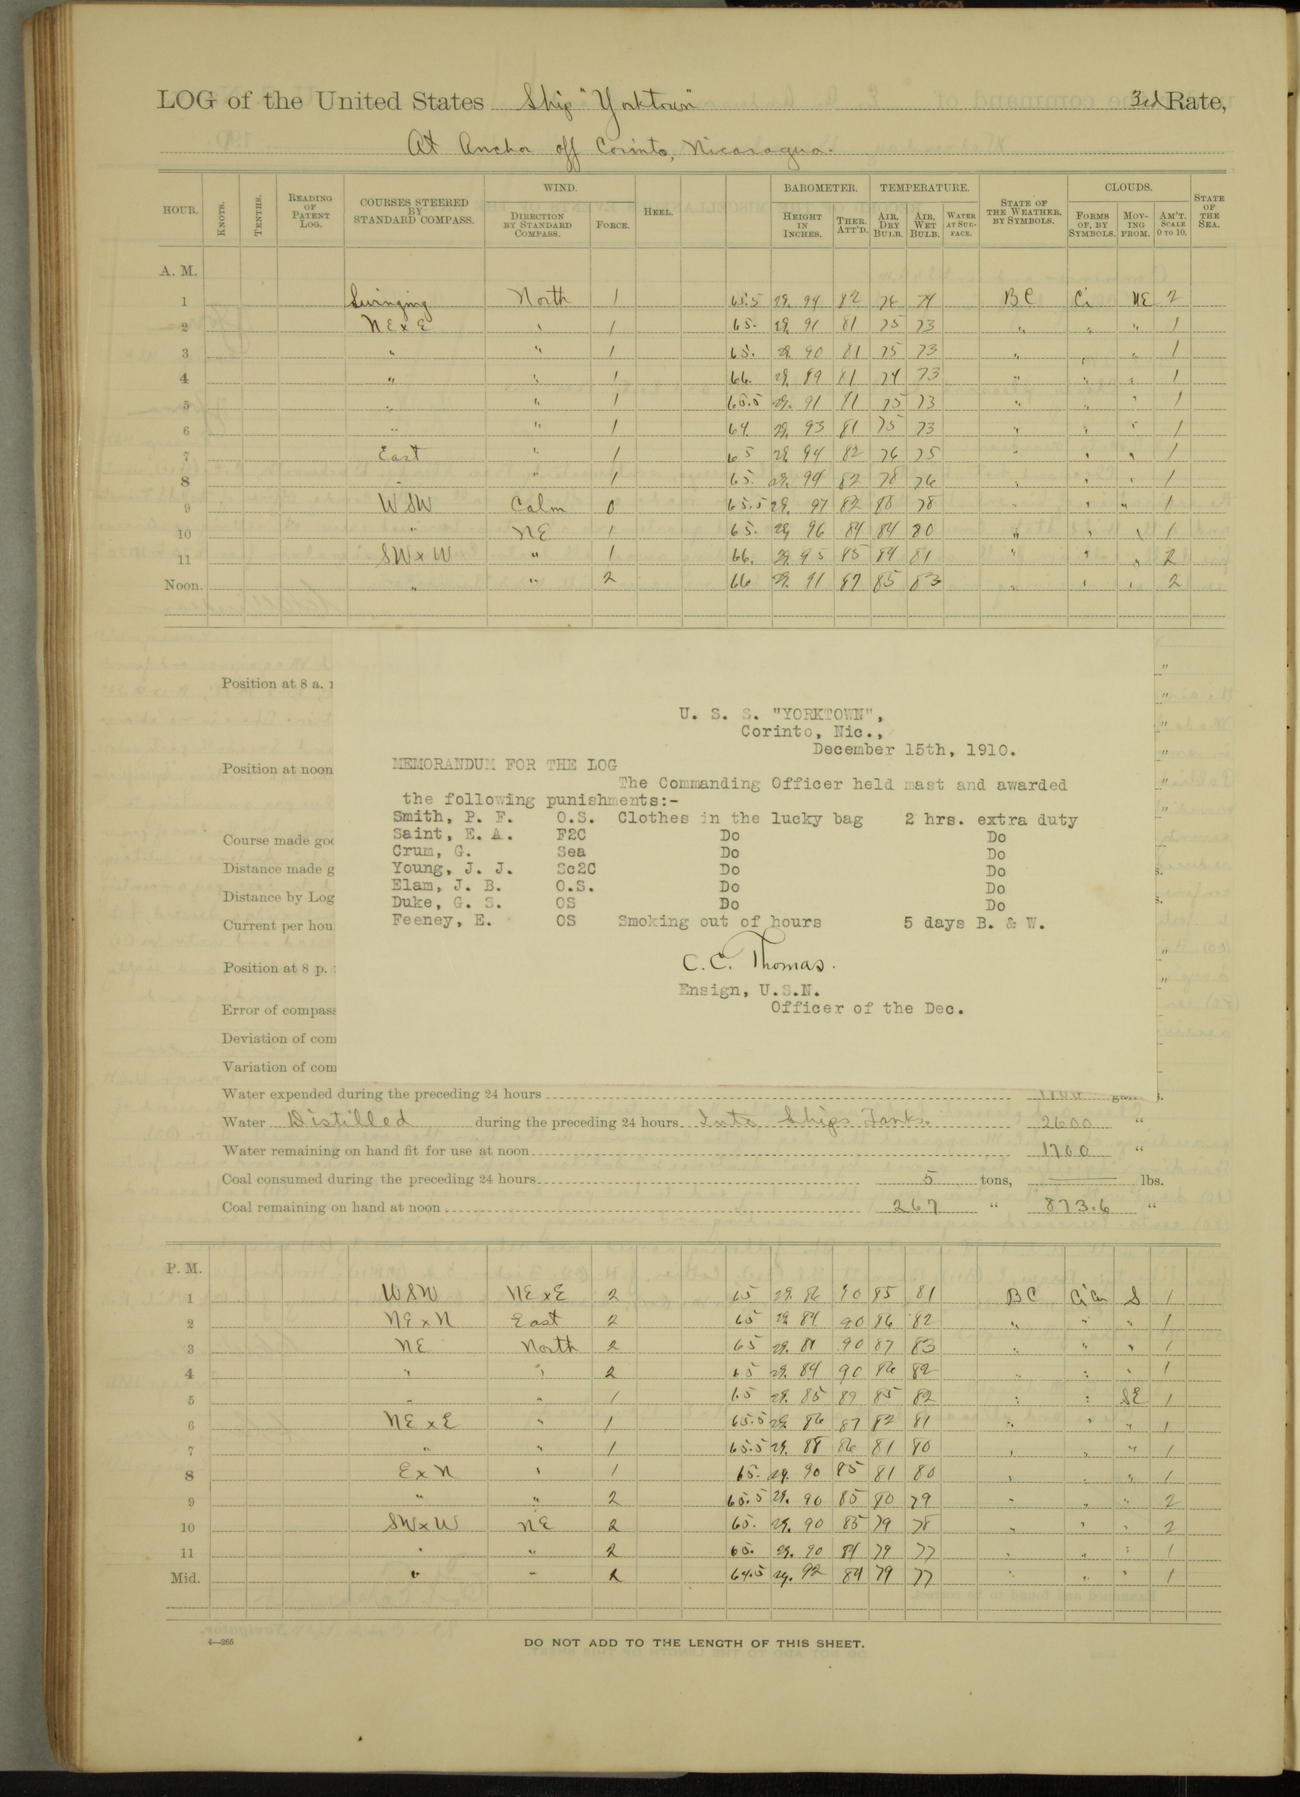 LOG of the United States Ship "Yorktown" 3rd Rate,
At Anchor off Corinto, Nicaragua.
HOUR. KNOTS. TENTHS. READING OF PATENT LOG. COURSES STEERED BY STANDARD COMPASS. WIND. DIRECTION BY STANDARD COMPASS. FORCE. HEEL. BAROMETER. HEIGHT IN INCHES. THER. ATT'D. TEMPERATURE. AIR, DRY BULB. AIR, WET BULB. WATER AT SURFACE. STATE OF THE WEATHER, BY SYMBOLS. CLOUDS. FORMS OF, BY SYMBOLS. MOVING FROM. AM'T. SCALE 0 TO 10. STATE OF THE SEA.
A. M.
1 Swinging North 1 65.5 29. 94 82 76 74 BC Ci NE 2
2 NExE " 1 65. 29. 91 81 75 73 " " " 1
3 " " 1 65. 29. 90 81 75 73 " " " 1
4 " " 1 66. 29. 89 81 74 73 " " " 1
5 " " 1 65.5 29. 91 81 75 73 " " " 1
6 " " 1 64. 29. 93 81 75 73 " " " 1
7 East " 1 65 29. 94 82 76 75 " " " 1
8 " " 1 65. 29. 94 82 78 76 " " " 1
9 WSW Calm 0 65.5 29. 97 82 80 78 " " " 1
10 " NE 1 65. 29. 96 84 84 80 " " " 1
11 SWxW " 1 66. 29. 95 85 84 81 " " " 2
Noon. " " 2 66 29. 91 87 85 83 " " " 2
Position at 8 a.
Position at noon
Course made
Distance made
Distance by Log
Current per
Position at 8 p.
Error of compass
Deviation of
Variation of
U. S. S. "YORKTOWN",
Corinto, Nic.,
December 15th, 1910.
MEMORANDUM FOR THE LOG
The Commanding Officer held mast and awarded
the following punishments:-
Smith, P. F. O.S. Clothes in the lucky bag 2 hrs. extra duty
Saint, E. A. F2C Do Do
Crum, G. Sea Do Do
Young, J. J. Sc2C Do Do
Elam, J. B. O.S. Do Do
Duke, G. S. OS Do Do
Feeney, E. OS Smoking out of hours 5 days B. & W.
C. C. Thomas.
Ensign, U.S.N.
Officer of the Dec.
Water expended during the preceding 24 hours
Water Distilled during the preceding 24 hours Into Ships Tanks. 2600 "
Water remaining on hand fit for use at noon 1700 "
Coal consumed during the preceding 24 hours 5 tons, lbs.
Coal remaining on hand at noon 267 " 873.6 "
P. M.
1 WSW NExE 2 65 29. 86 90 85 81 BC CiCu S 1
2 NExN East 2 65 29. 84 90 86 82 " " " 1
3 NE North 2 65 29. 81 90 87 83 " " " 1
4 " " 2 65 29. 84 90 86 82 " " " 1
5 " " 1 65 29. 85 89 85 82 " " SE 1
6 NExE " 1 65.5 29. 86 87 82 81 " " " 1
7 " " 1 65.5 29. 88 86 81 80 " " " 1
8 ExN " 1 65. 29. 90 85 81 80 " " " 1
9 " " 2 65.5 29. 90 85 80 79 " " " 2
10 SWxW NE 2 65. 29. 90 85 79 78 " " " 2
11 " " 2 65. 29. 90 84 79 77 " " " 1
Mid. " " 2 64.5 29. 92 84 79 77 " " " 1
4—265
DO NOT ADD TO THE LENGTH OF THIS SHEET.